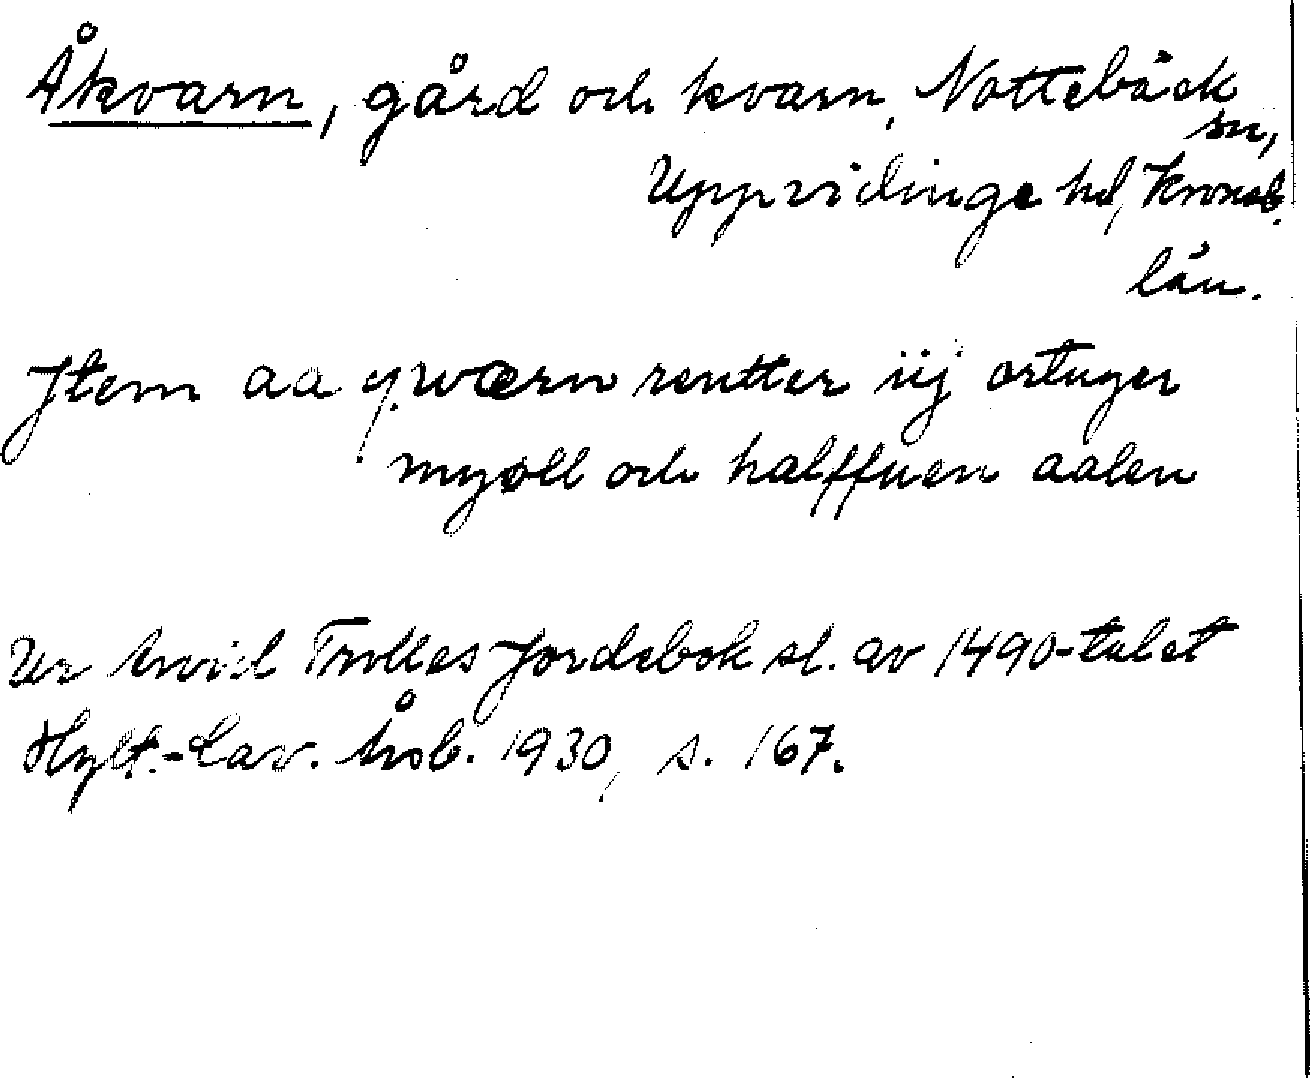 Åkvarn, gård och kvarn, Nottebäck
sn,
Uppvidinge hd, Kronob.
län.
Jtem aa qwærn rentter iij ortuger
myøll och halffuen aalen
Ur Arvid Trolles Jordebok sl. av 1490-talet
Hylt.-Cav. Årsb. 1930, s. 167.